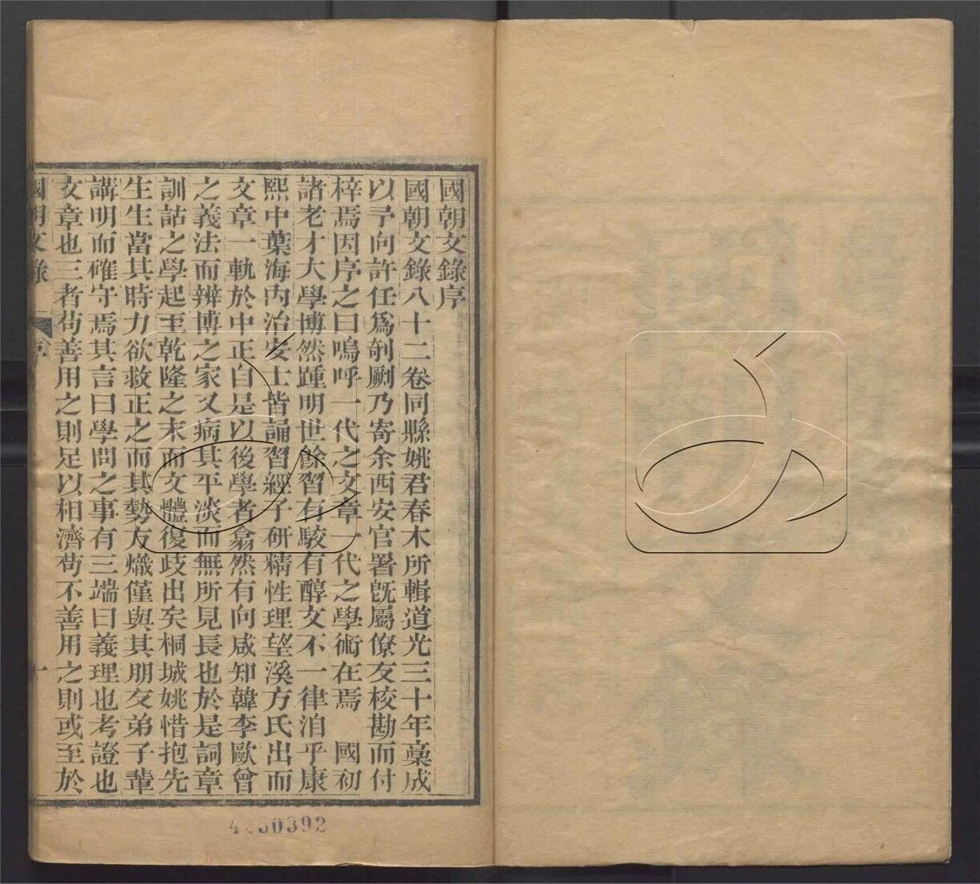 國朝文錄序
國朝文錄八十二卷同縣姚君春木所輯道光三十年稾成
以予向許任爲剞劂乃寄余西安官署旣屬僚友校勘而付
梓焉因序之曰嗚呼一代之文章一代之學術在焉　國初
諸老才大學博然踵明世餘習有駮有醇文不一律洎乎康
熙中葉海內治安士皆誦習經子研精性理望溪方氏出而
文章一軌於中正自是以後學者翕然有向咸知韓李歐曾
之義法而辨博之家又病其平淡而無所見長也於是詞章
訓詁之學起至乾隆之末而文體復歧出矣桐城姚惜抱先
生生當其時力欲救正之而其勢方熾僅與其朋友弟子輩
講明而確守焉其言曰學問之事有三端曰義理也考證也
文章也三者苟善用之則足以相濟苟不善用之則或至於
國朝文錄　序　一
0392